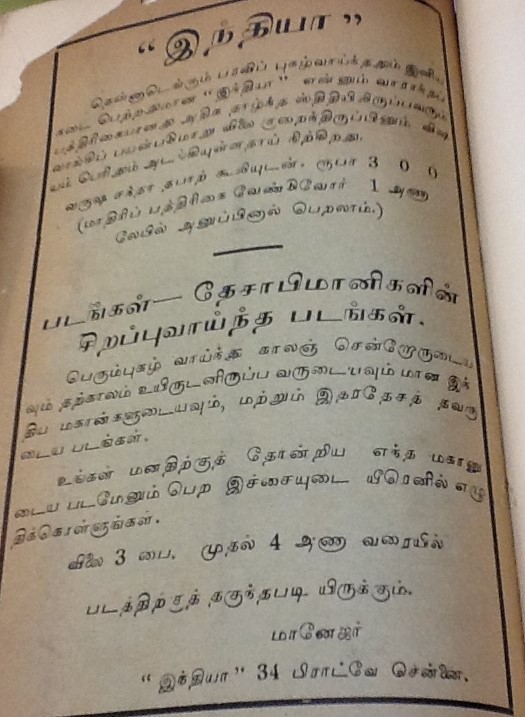 “இந்தியா”
தென்னாடெங்கும் பரவிப் புகழ்வாய்ந்ததும் இனிய
நடை பெற்றதுமான “இந்தியா” என்னும் வாராந்தரப்
பத்திரிகையானது அதிக தாழ்ந்த ஸ்திதியிலிருப்பவரும்
வாங்கிப் பயன்படுமாறு விலை குறைந்திருப்பினும் விஷ
யம் பெரிதும் அடங்கியுள்ளதாய் நிற்கிறது.
வருஷ சந்தா தபாற் கூலியுடன். ரூபா 3 0 0
(மாதிரிப் பத்திரிகை வேண்டுவோர் 1 அணா
லேபில் அனுப்பினால் பெறலாம்.)
படங்கள்— தேசாபிமானிகளின்
சிறப்புவாய்ந்த படங்கள்.
பெரும்புகழ் வாய்ந்த காலஞ் சென்றோருடைய
வும் தற்காலம் உயிருடனிருப்ப வருடையவும் மான இந்
திய மகான்களுடையவும், மற்றும் இதரதேசத் தவரு
டைய படங்கள்.
உங்கள் மனதிற்குத் தோன்றிய எந்த மகானு
டைய படமேனும் பெற இச்சையுடை யீரெனில் எழு
திக்கொள்ளுங்கள்.
விலை 3 பை. முதல் 4 அணா வரையில்
படத்திற்குத் தகுந்தபடி யிருக்கும்.
மானேஜர்
“இந்தியா” 34 பிராட்வே சென்னை.